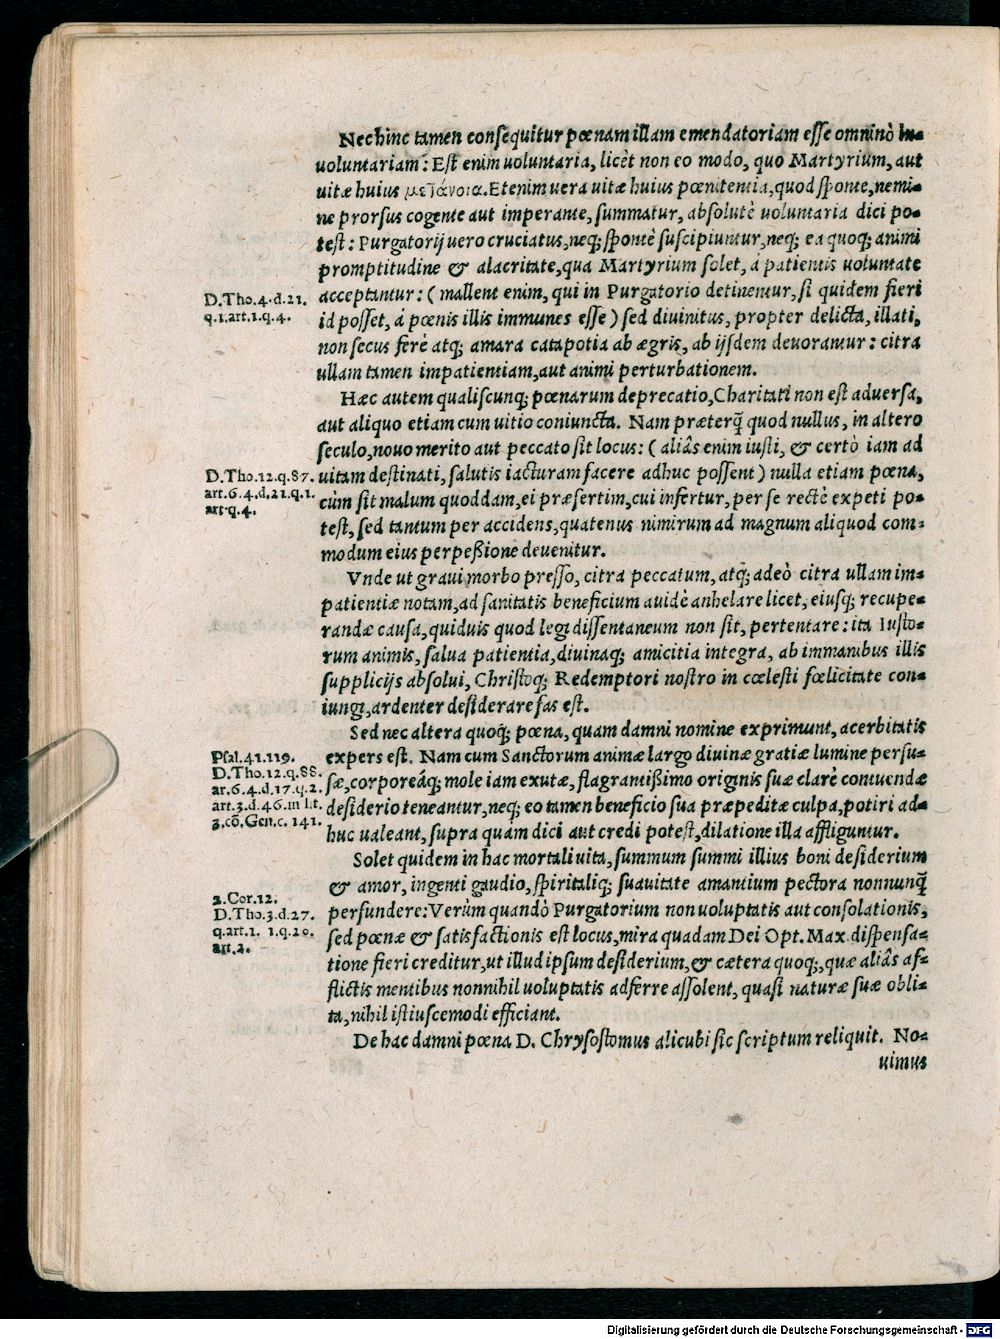 Nec hinc tamen consequitur pœnam illam emendatoriam esse omninò in-
uoluntariam: Est enim uoluntaria, licèt non eo modo, quo Martyrium, aut
uitæ huius μετάνοια. Etenim uera uitæ huius pœnitentia, quod sponte, nemi-
ne prorsus cogente aut imperante, summatur, absolutè uoluntaria dici po-
test: Purgatorij uero cruciatus, neq; spontè suscipiuntur, neq; ea quoq; animi
promptitudine & alacritate, qua Martyrium solet, á patientis uoluntate
D.Tho.4.d.21.
q.1.art.1.q.4.
acceptantur: ( mallent enim, qui in Purgatorio detinentur, si quidem fieri
id posset, á pœnis illis immunes esse ) sed diuinitus, propter delicta, illati,
non secus ferè atq; amara catapotia ab ægris, ab ijsdem deuorantur: citra
ullam tamen impatientiam, aut animi perturbationem.
Hæc autem qualiscunq; pœnarum deprecatio, Charitati non est aduersa,
aut aliquo etiam cum uitio coniuncta. Nam præterq̃ quod nullus, in altero
seculo, nouo merito aut peccato sit locus: ( aliâs enim iusti, & certò iam ad
D.Tho.12.q.87.
art.6.4.d.21.q.1.
art.q.4.
uitam destinati, salutis iacturam facere adhuc possent ) nulla etiam pœna,
cùm sit malum quoddam, ei præsertim, cui infertur, per se rectè expeti po-
test, sed tantum per accidens, quatenus nimirum ad magnum aliquod com-
modum eius perpeßione deuenitur.
Vnde ut graui morbo presso, citra peccatum, atq; adeò citra ullam im-
patientiæ notam, ad sanitatis beneficium auidè anhelare licet, eiusq; recupe-
randæ causa, quiduis quod legi dissentaneum non sit, pertentare: ita Iusto-
rum animis, salua patientia, diuinaq; amicitia integra, ab immanibus illis
supplicijs absolui, Christoq; Redemptori nostro in cœlesti fœlicitate con-
iungi, ardenter desiderare fas est.
Sed nec altera quoq; pœna, quam damni nomine exprimunt, acerbitatis
Psal.41.119.
D.Tho.12.q.88.
ar.6.4.d.17.q.2.
art.3.d.46.in lit.
3.cõ.Gen.c.141.
expers est. Nam cum Sanctorum animæ largo diuinæ gratiæ lumine persu-
sæ, corporeáq; mole iam exutæ, flagrantißimo originis suæ clarè contuendæ
desiderio teneantur, neq; eo tamen beneficio sua præpeditæ culpa, potiri ad-
huc ualeant, supra quàm dici aut credi potest, dilatione illa affliguntur.
Solet quidem in hac mortali uita, summum summi illius boni desiderium
2.Cor.12.
D.Tho.3.d.27.
q.art.1. 1.q.20.
art.2.
& amor, ingenti gaudio, spiritaliq; suauitate amantium pectora nonnunq̃
perfundere: Verùm quandò Purgatorium non uoluptatis aut consolationis,
sed pœnæ & satisfactionis est locus, mira quadam Dei Opt. Max. dispensa-
tione fieri creditur, ut illud ipsum desiderium, & cætera quoq;, quæ aliâs af-
flictis mentibus nonnihil uoluptatis adferre assolent, quasi naturæ suæ obli-
ta, nihil istiuscemodi efficiant.
De hac damni pœna D. Chrysostomus alicubi sic scriptum reliquit. No-
uimus
Digitalisierung gefördert durch die Deutsche Forschungsgemeinschaft - DFG